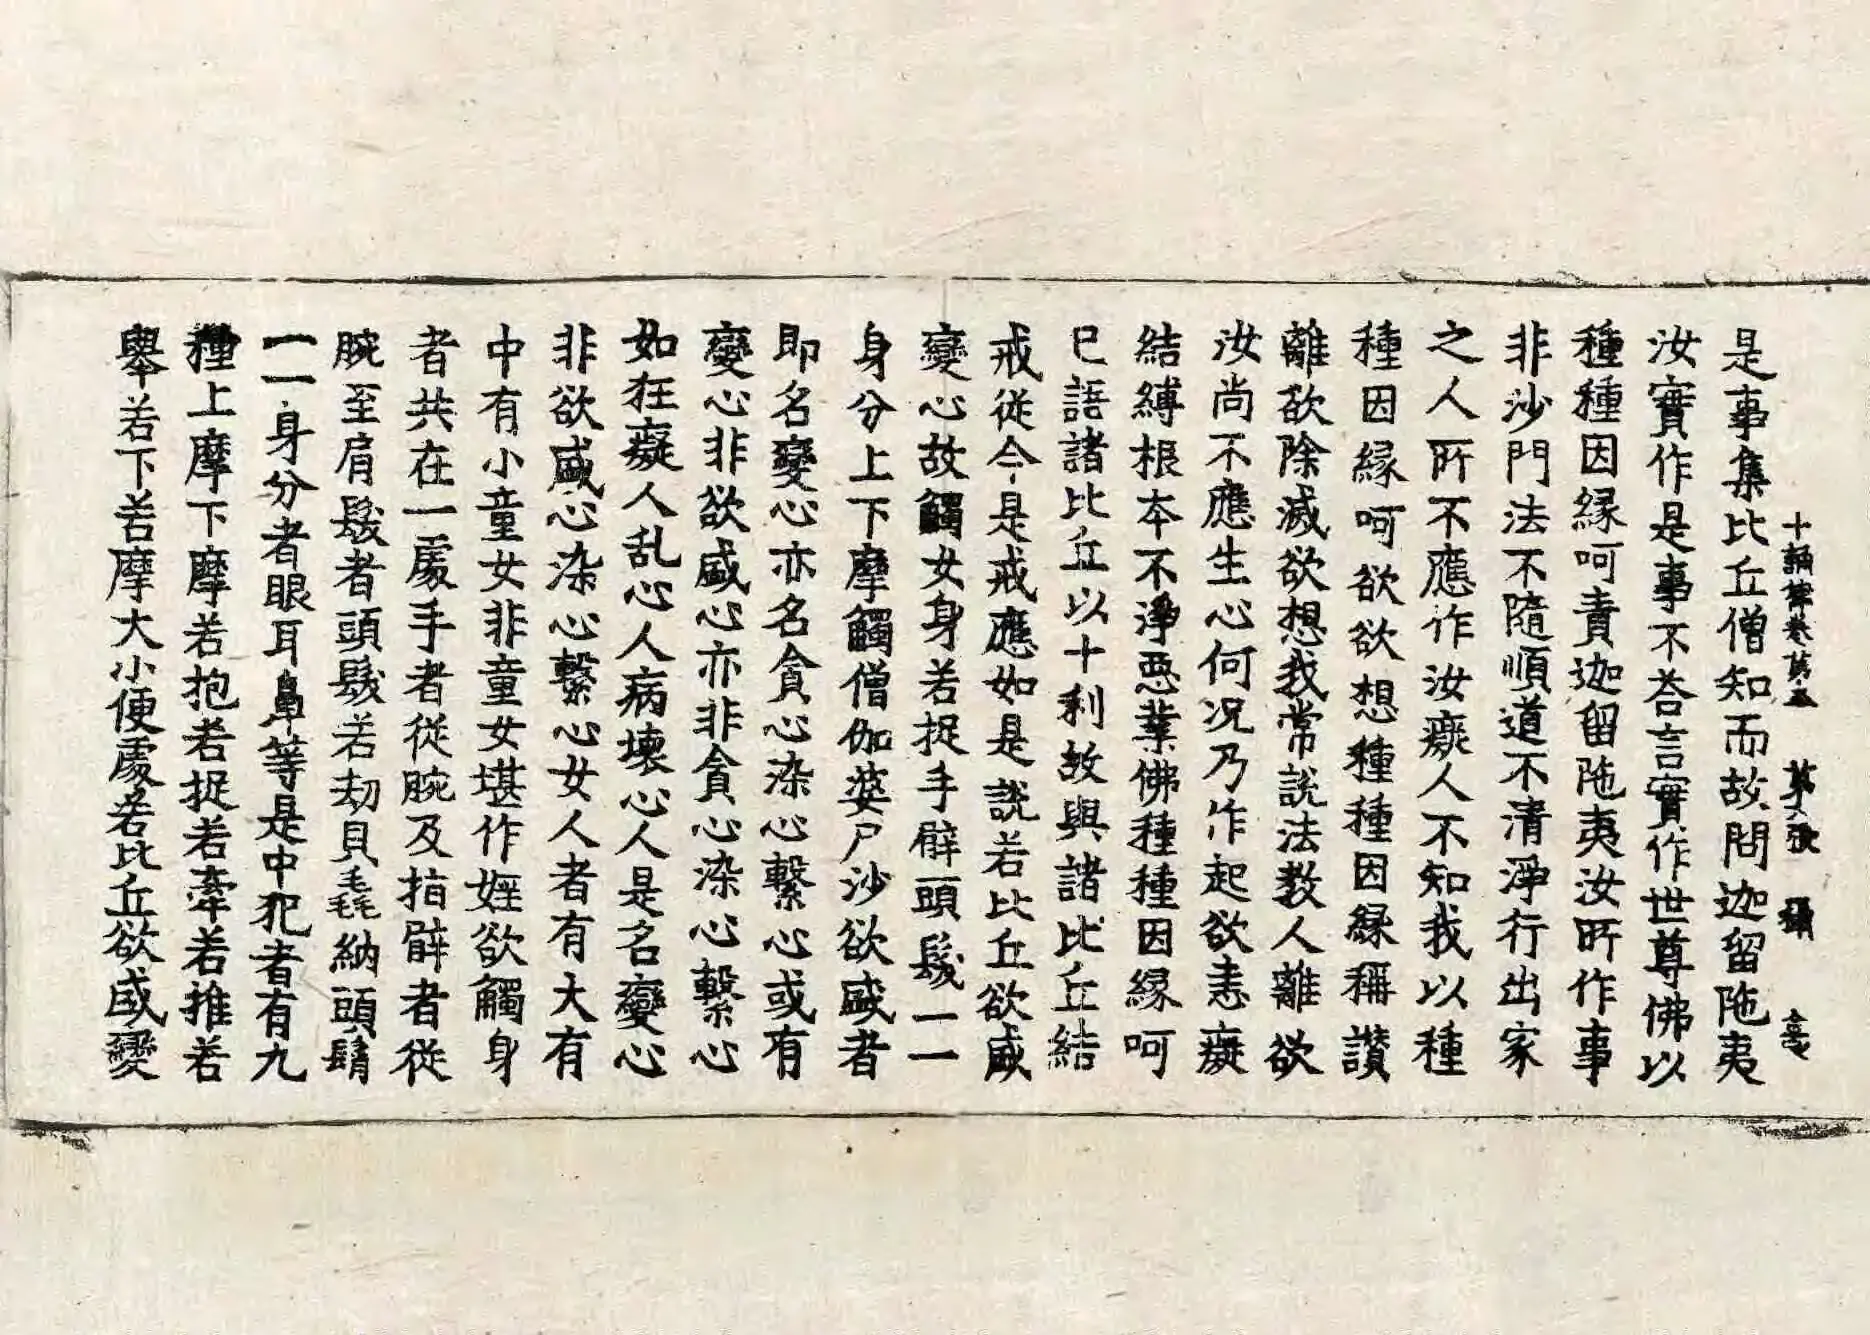 十誦律卷第五 第六張 攝
是事集比丘僧知而故問迦留陁夷
汝實作是事不荅言實作世尊佛以
種種因緣呵責迦留陁夷汝所作事
非沙門法不隨順道不清淨行出家
之人所不應作汝癡人不知我以種
種因緣呵欲欲想種種因緣稱讃
離欲除滅欲想我常說法教人離欲
汝尚不應生心何况乃作起欲恚癡
結縛根本不淨惡業佛種種因緣呵
已語諸比丘以十利故與諸比丘結
戒從今是戒應如是說若比丘欲盛
變心故觸女身若捉手臂頭髮一一
身分上下摩觸僧伽婆尸沙欲盛者
即名變心亦名貪心染心繫心或有
變心非欲盛心亦非貪心染心繫心
如狂癡人乱心人病壞心人是名變心
非欲盛心染心繫心女人者有大有
中有小童女非童女堪作婬欲觸身
者共在一處手者從腕及指臂者從
腕至肩髮者頭髮若劫貝毳納頭䯻
一一身分者眼耳鼻等是中犯者有九
種上摩下摩若抱若捉若牽若推若
舉若下若摩大小便處若比丘欲盛變